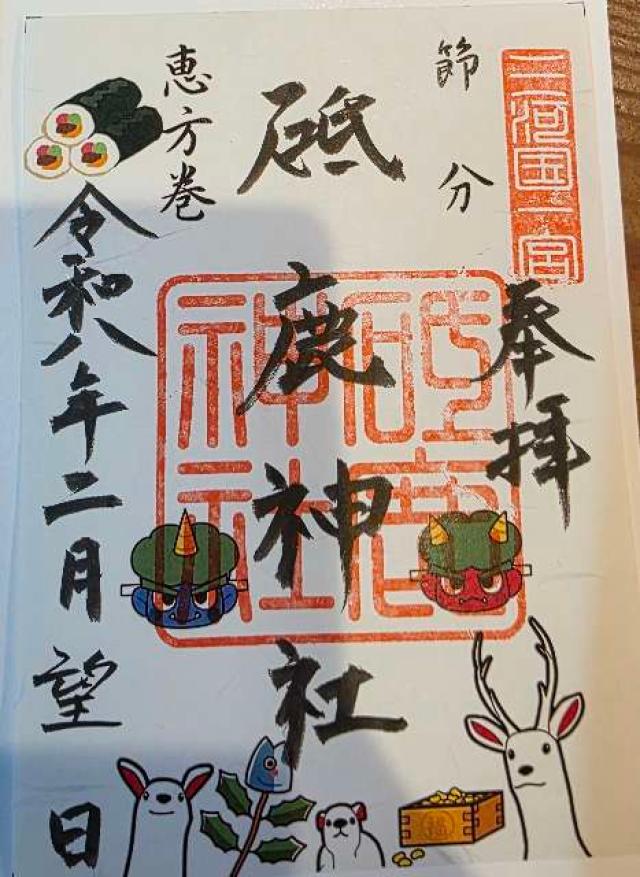 三河国一宮
節分
奉拝
砥鹿神社
砥鹿神社
恵方巻
令和八年二月望日
福